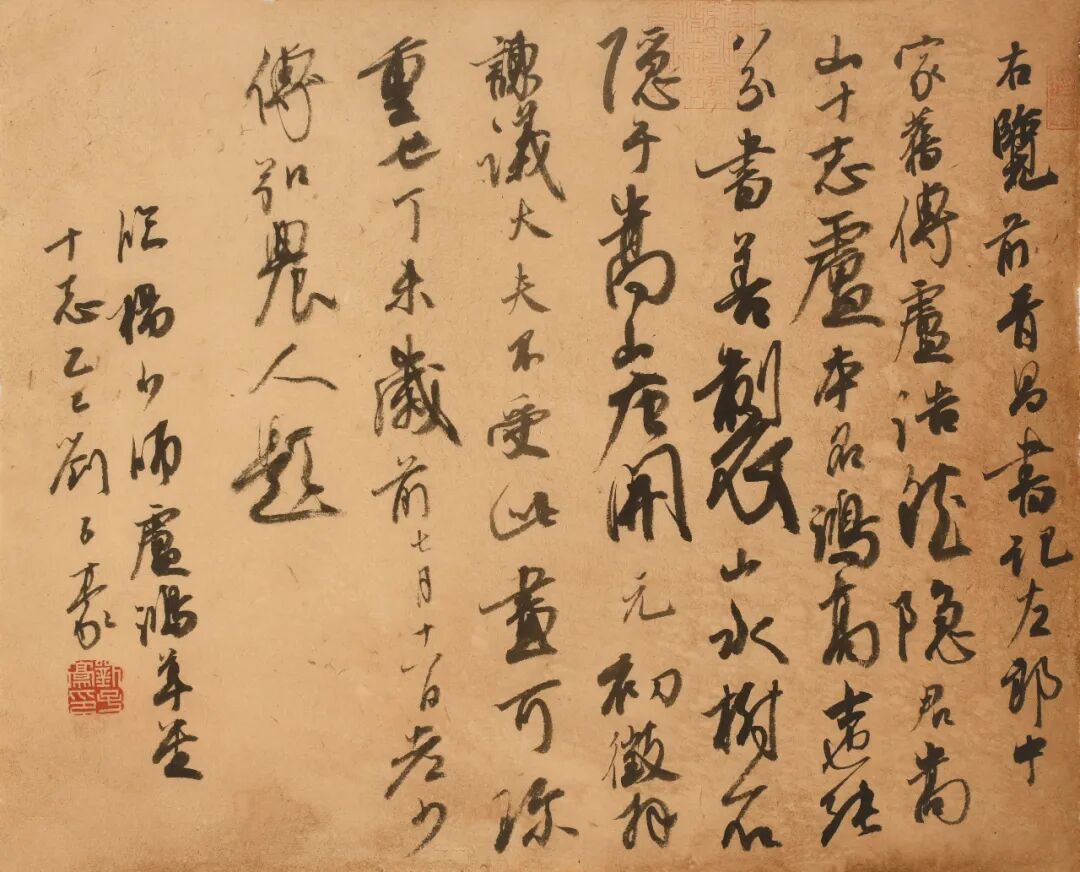 右覽前晉昌書記左郎中
家舊傳盧浩然隐君嵩
山十志盧本名鴻高士也能
八分書善製山水樹石
隐于嵩山唐開元初徵拜
諫議大夫不受此畫可珍
重也丁未歲前七月十八日老少
傅弘農人題
臨楊少師盧鴻草堂
十志乙巳劉子豪